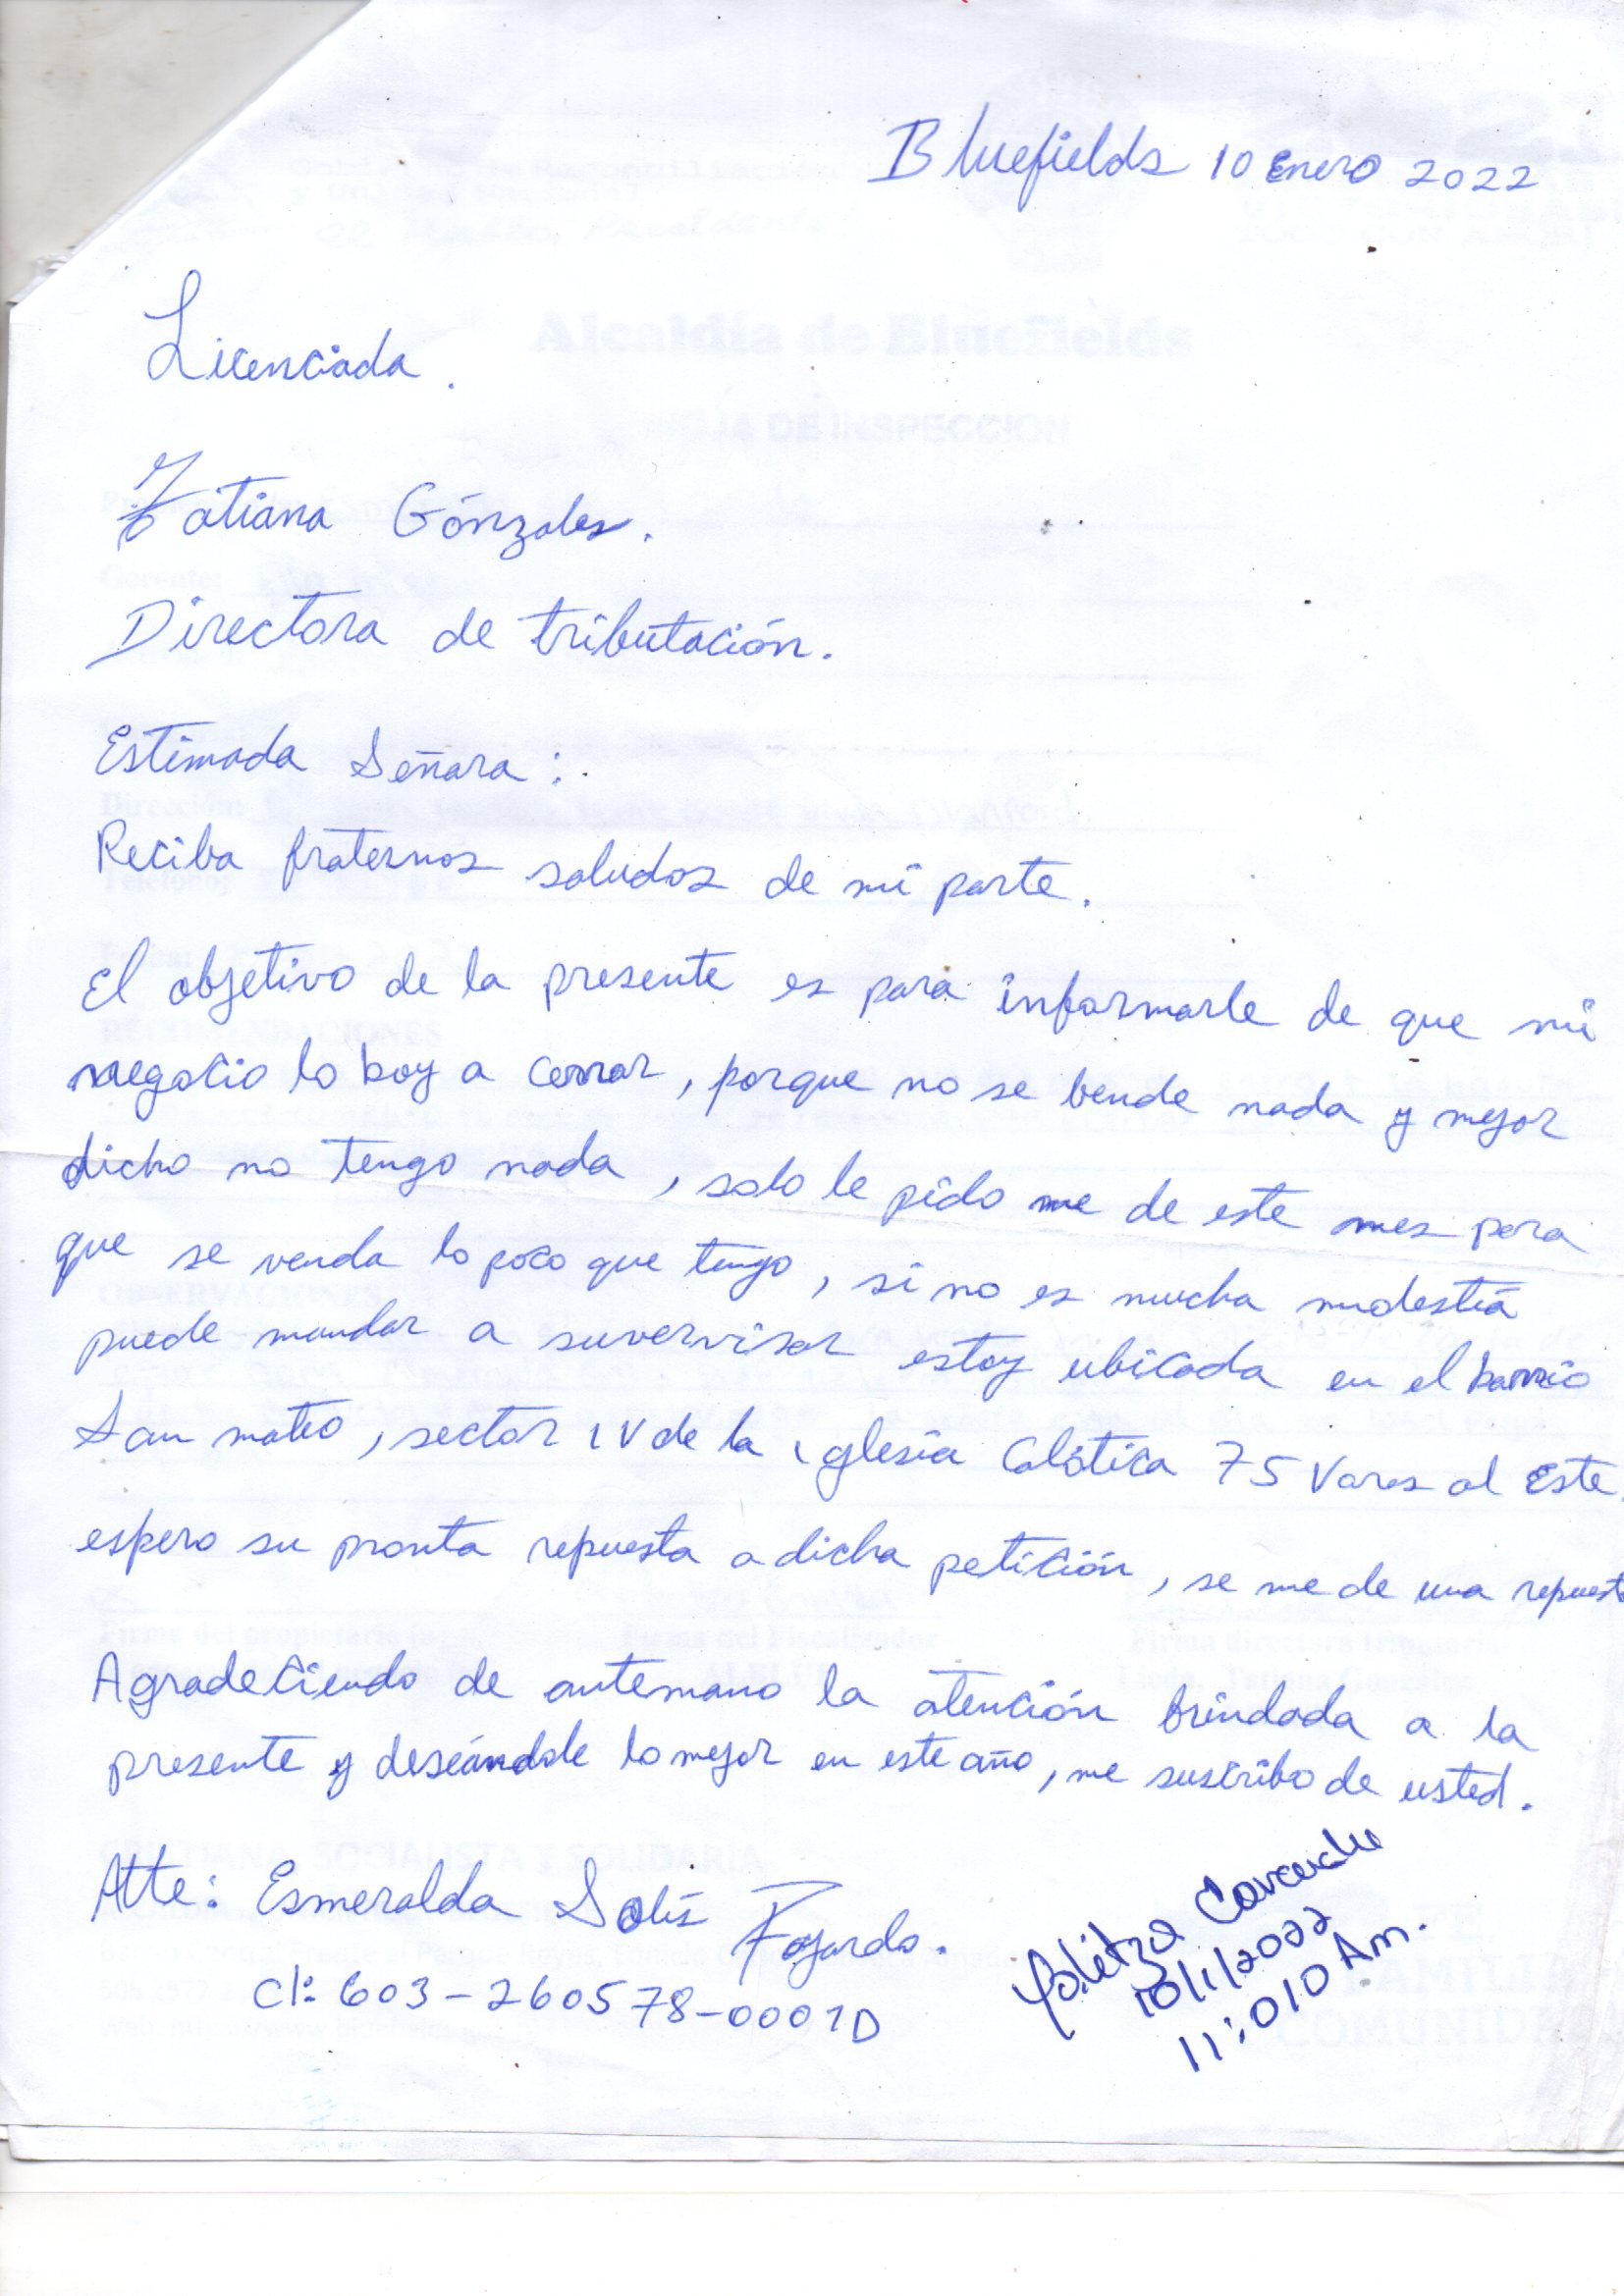 Bluefields 10 Enero 2022
Licenciada.
Tatiana Gónzales.
Directora de tributación.
Estimada Señora:
Reciba fraternos saludos de mi parte.
El objetivo de la presente es para informarle de que mi
negocio lo boy a cerrar, porque no se bende nada y mejor
dicho no tengo nada, solo le pido me de este mes para
que se venda lo poco que tengo, si no es mucha modestia
puede mandar a suvervisar estoy ubicada en el barrio
San mateo, sector IV de la iglesia Calotica 75 Varas al Este,
espero su pronta repuesta a dicha petición, se me de una repuest
Agradeciendo de antemano la atención brindada a la
presente y deseándole lo mejor en este año, me suscribo de usted.
Atte: Esmeralda Solís Fajardo.
CI: 603-260578-0001D
10/1/2022
11:010 Am.
Alcaldía de Bluefields
HOJA DE INSPECCION
Gerente:
Dirección:
Teléfono:
Fecha:
RECOMENDACIONES
OBSERVACIONES
CRISTIANA, SOCIALISTA Y SOLIDARIA